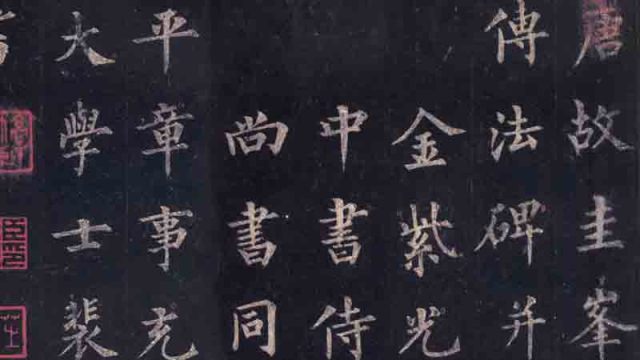 唐故圭峯
傳法碑并
金紫光
中書侍
尚書同
平章事充
大學士裴